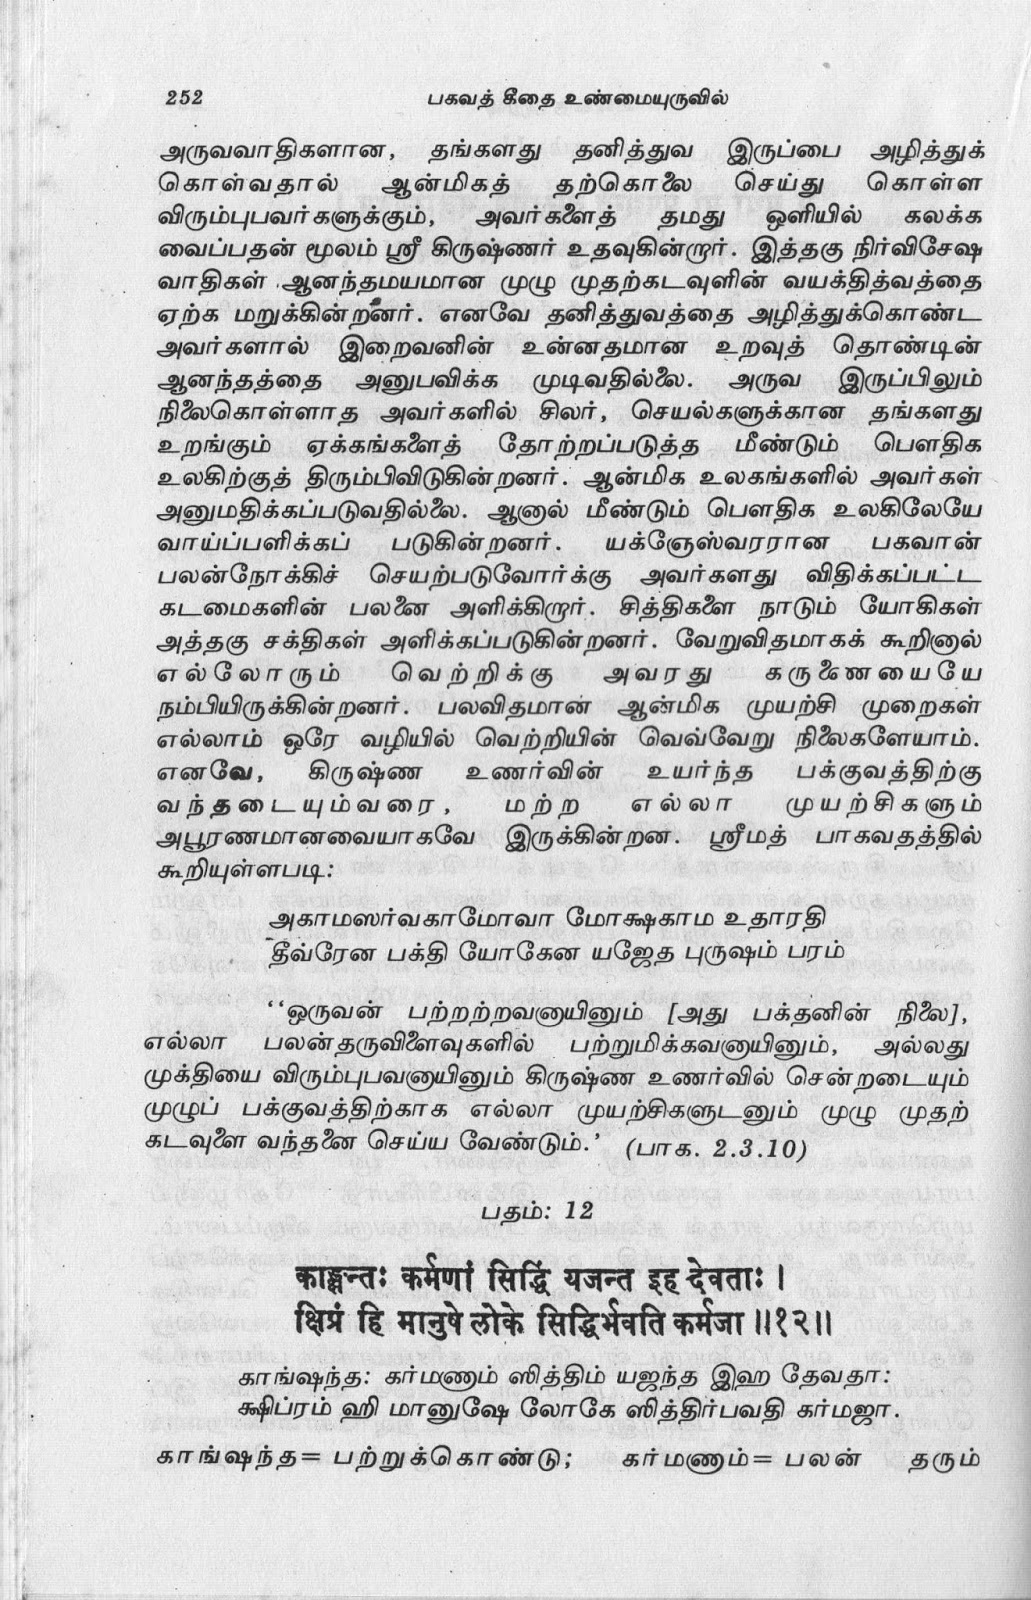 252 பகவத் கீதை உண்மையுருவில்
அருவவாதிகளான, தங்களது தனித்துவ இருப்பை அழித்துக்
கொள்வதால் ஆன்மிகத் தற்கொலை செய்து கொள்ள
விரும்புபவர்களுக்கும், அவர்களைத் தமது ஒளியில் கலக்க
வைப்பதன் மூலம் ஸ்ரீ கிருஷ்ணர் உதவுகின்றார். இத்தகு நிர்விசேஷ
வாதிகள் ஆனந்தமயமான முழு முதற்கடவுளின் வயக்தித்வத்தை
ஏற்க மறுக்கின்றனர். எனவே தனித்துவத்தை அழித்துக்கொண்ட
அவர்களால் இறைவனின் உன்னதமான உறவுத் தொண்டின்
ஆனந்தத்தை அனுபவிக்க முடிவதில்லை. அருவ இருப்பிலும்
நிலைகொள்ளாத அவர்களில் சிலர், செயல்களுக்கான தங்களது
உறங்கும் ஏக்கங்களைத் தோற்றப்படுத்த மீண்டும் பௌதிக
உலகிற்குத் திரும்பிவிடுகின்றனர். ஆன்மிக உலகங்களில் அவர்கள்
அனுமதிக்கப்படுவதில்லை. ஆனால் மீண்டும் பௌதிக உலகிலேயே
வாய்ப்பளிக்கப் படுகின்றனர். யக்ஞேஸ்வரரான பகவான்
பலன்நோக்கிச் செயற்படுவோர்க்கு அவர்களது விதிக்கப்பட்ட
கடமைகளின் பலனை அளிக்கிறார். சித்திகளை நாடும் யோகிகள்
அத்தகு சக்திகள் அளிக்கப்படுகின்றனர். வேறுவிதமாகக் கூறினால்
எல்லோரும் வெற்றிக்கு அவரது கருணையையே
நம்பியிருக்கின்றனர். பலவிதமான ஆன்மிக முயற்சி முறைகள்
எல்லாம் ஒரே வழியில் வெற்றியின் வெவ்வேறு நிலைகளேயாம்.
எனவே, கிருஷ்ண உணர்வின் உயர்ந்த பக்குவத்திற்கு
வந்தடையும்வரை, மற்ற எல்லா முயற்சிகளும்
அபூரணமானவையாகவே இருக்கின்றன. ஸ்ரீமத் பாகவதத்தில்
கூறியுள்ளபடி:
அகாமஸர்வகாமோவா மோக்ஷகாம உதாரதி
தீவ்ரேன பக்தி யோகேன யஜேத புருஷம் பரம்
“ஒருவன் பற்றற்றவனாயினும் [அது பக்தனின் நிலை],
எல்லா பலன்தருவிளைவுகளில் பற்றுமிக்கவனாயினும், அல்லது
முக்தியை விரும்புபவனாயினும் கிருஷ்ண உணர்வில் சென்றடையும்
முழுப் பக்குவத்திற்காக எல்லா முயற்சிகளுடனும் முழு முதற்
கடவுளை வந்தனை செய்ய வேண்டும்.’ (பாக. 2.3.10)
பதம்: 12
काङ्क्षन्तः कर्मणां सिद्धिं यजन्त इह देवताः ।
क्षिप्रं हि मानुषे लोके सिद्धिर्भवति कर्मजा ॥१२॥
காங்ஷந்த: கர்மணாம் ஸித்திம் யஜந்த இஹ தேவதா:
க்ஷிப்ரம் ஹி மானுஷே லோகே ஸித்திர்பவதி கர்மஜா.
காங்ஷந்த= பற்றுக்கொண்டு; கர்மணாம்= பலன் தரும்